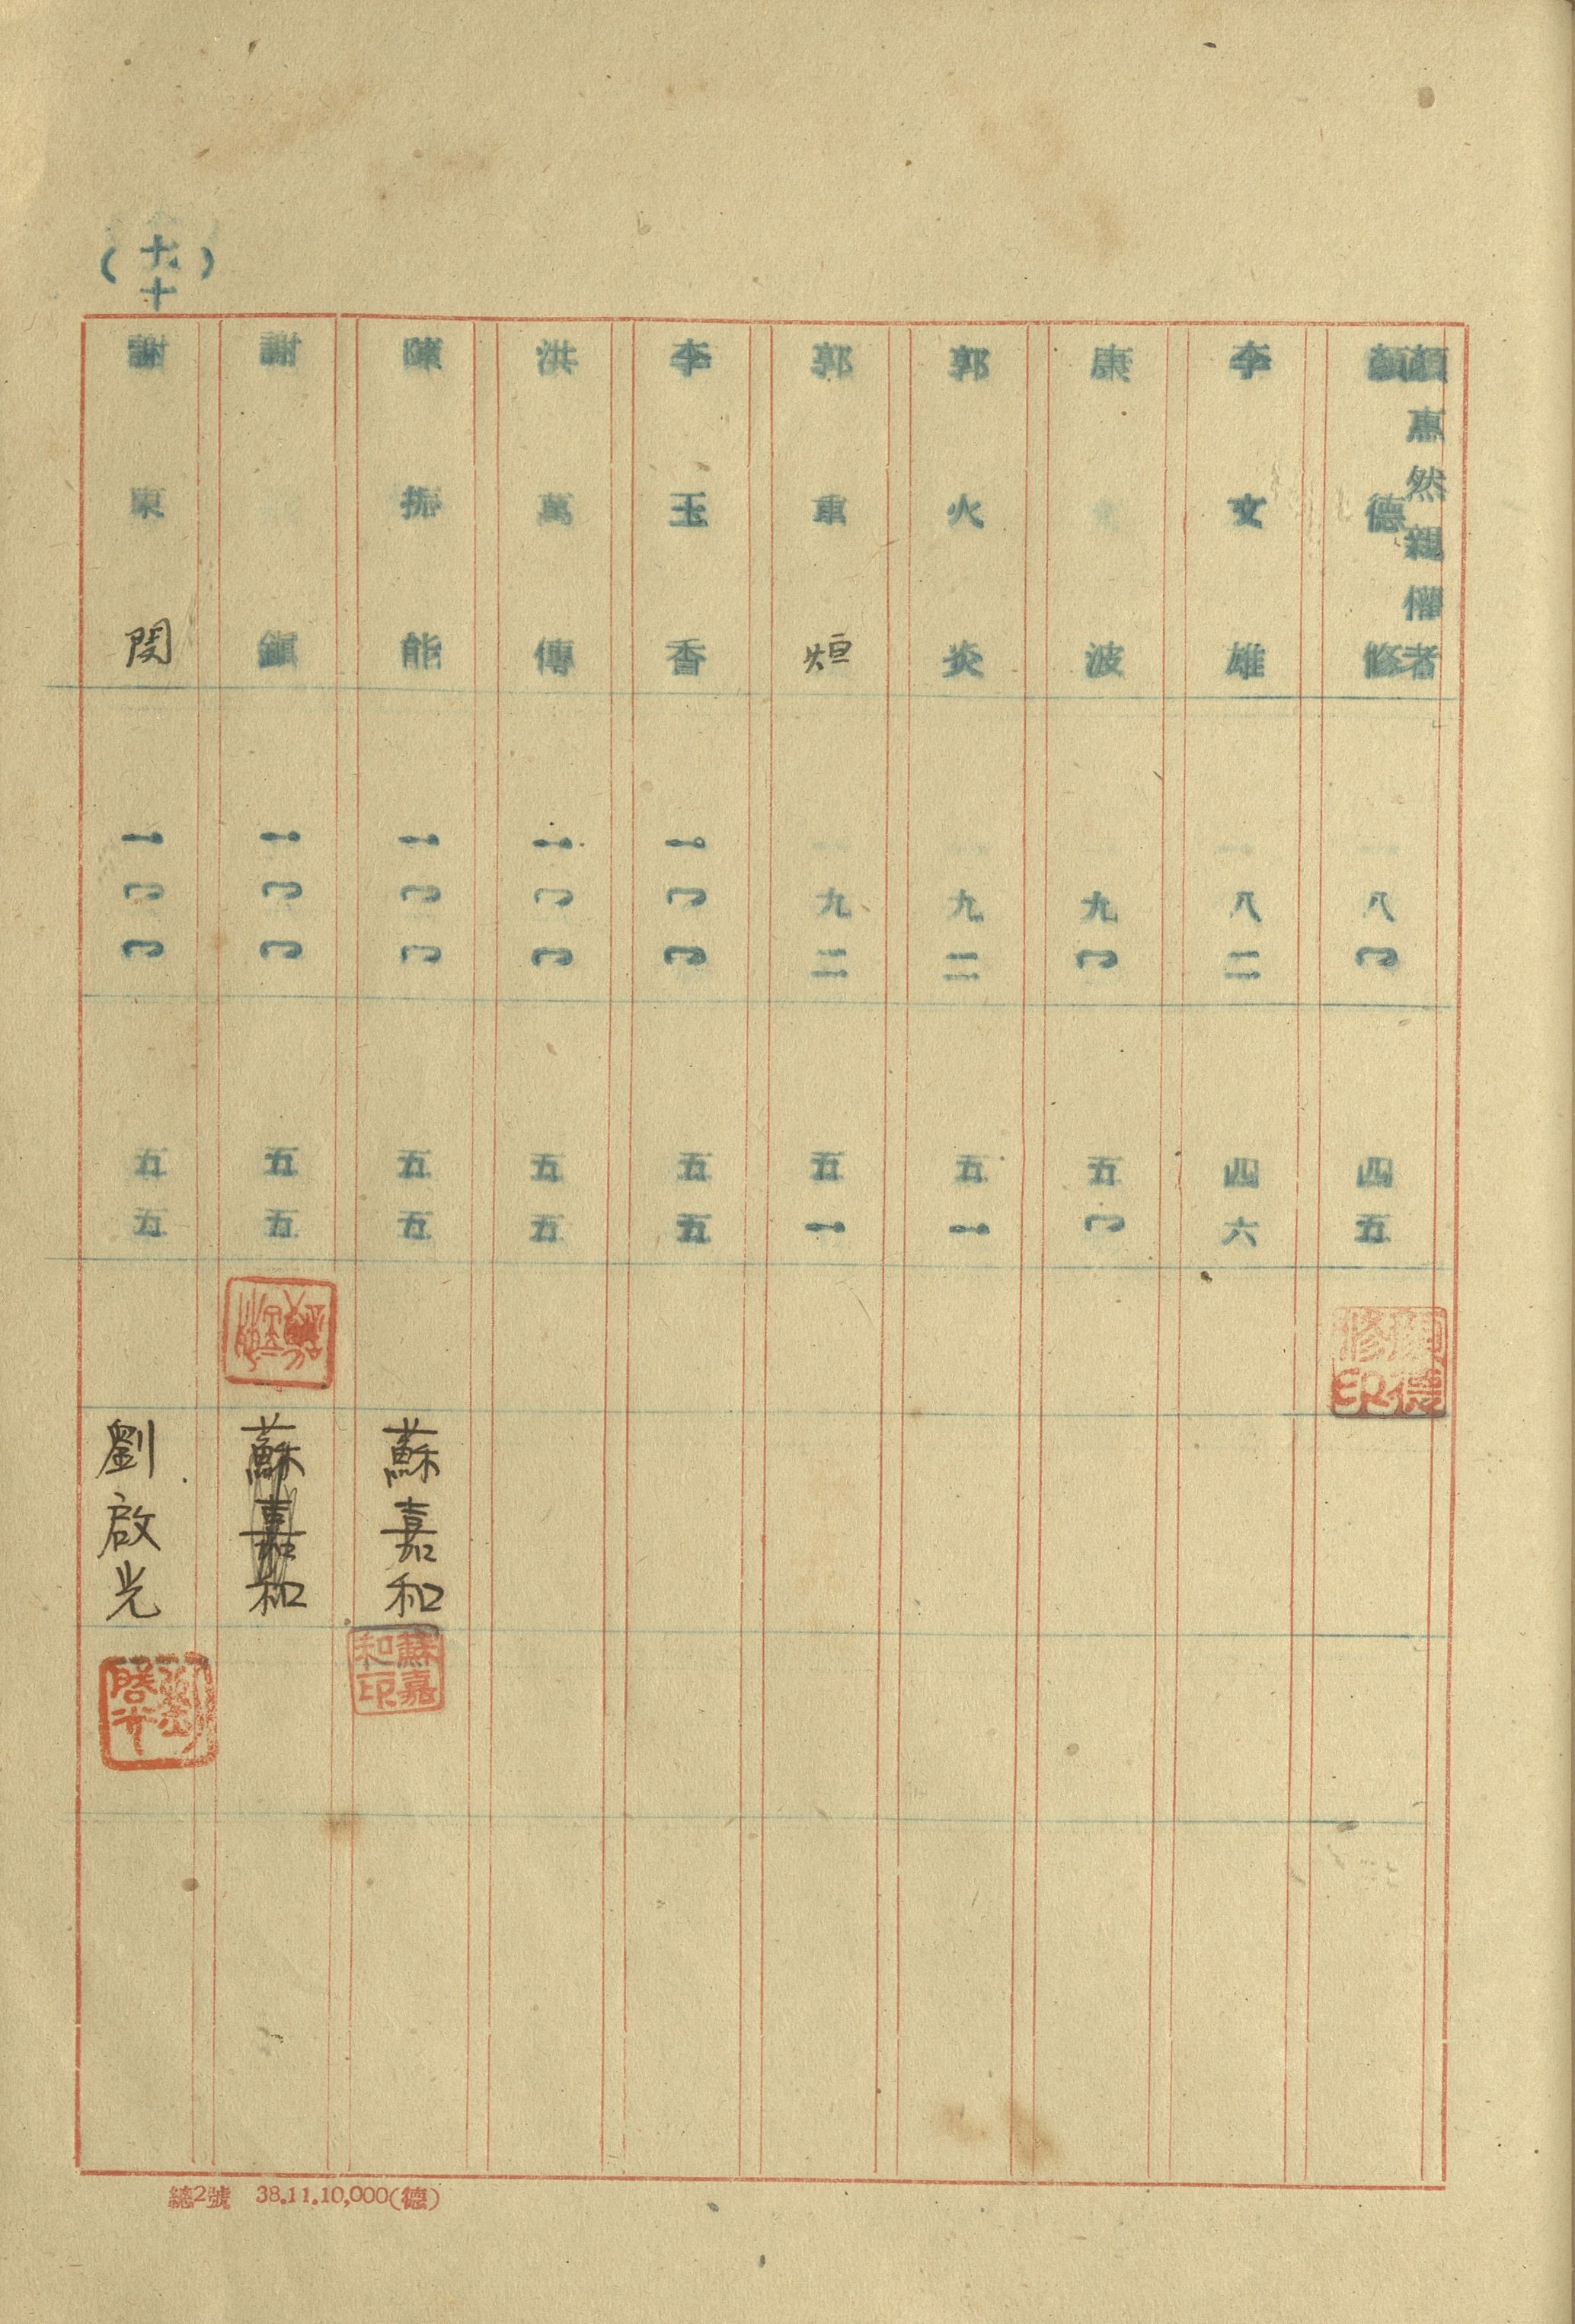 顏惠然親權者
顏德修 一八〇 四五
顏德修印
李文雄 一八二 四六
康 波 一九〇 五〇
郭火炎 一九二 五一
郭重烜 一九二 五一
李玉香 一〇〇 五五
洪萬傳 一〇〇 五五
陳振能 一〇〇 五五 蘇嘉和
蘇嘉和印
謝 鎮 一〇〇 五五 蘇嘉和
謝東閔 一〇〇 五五 劉啟光
劉啟光
(九十)
總2號 38.11.10,000(德)